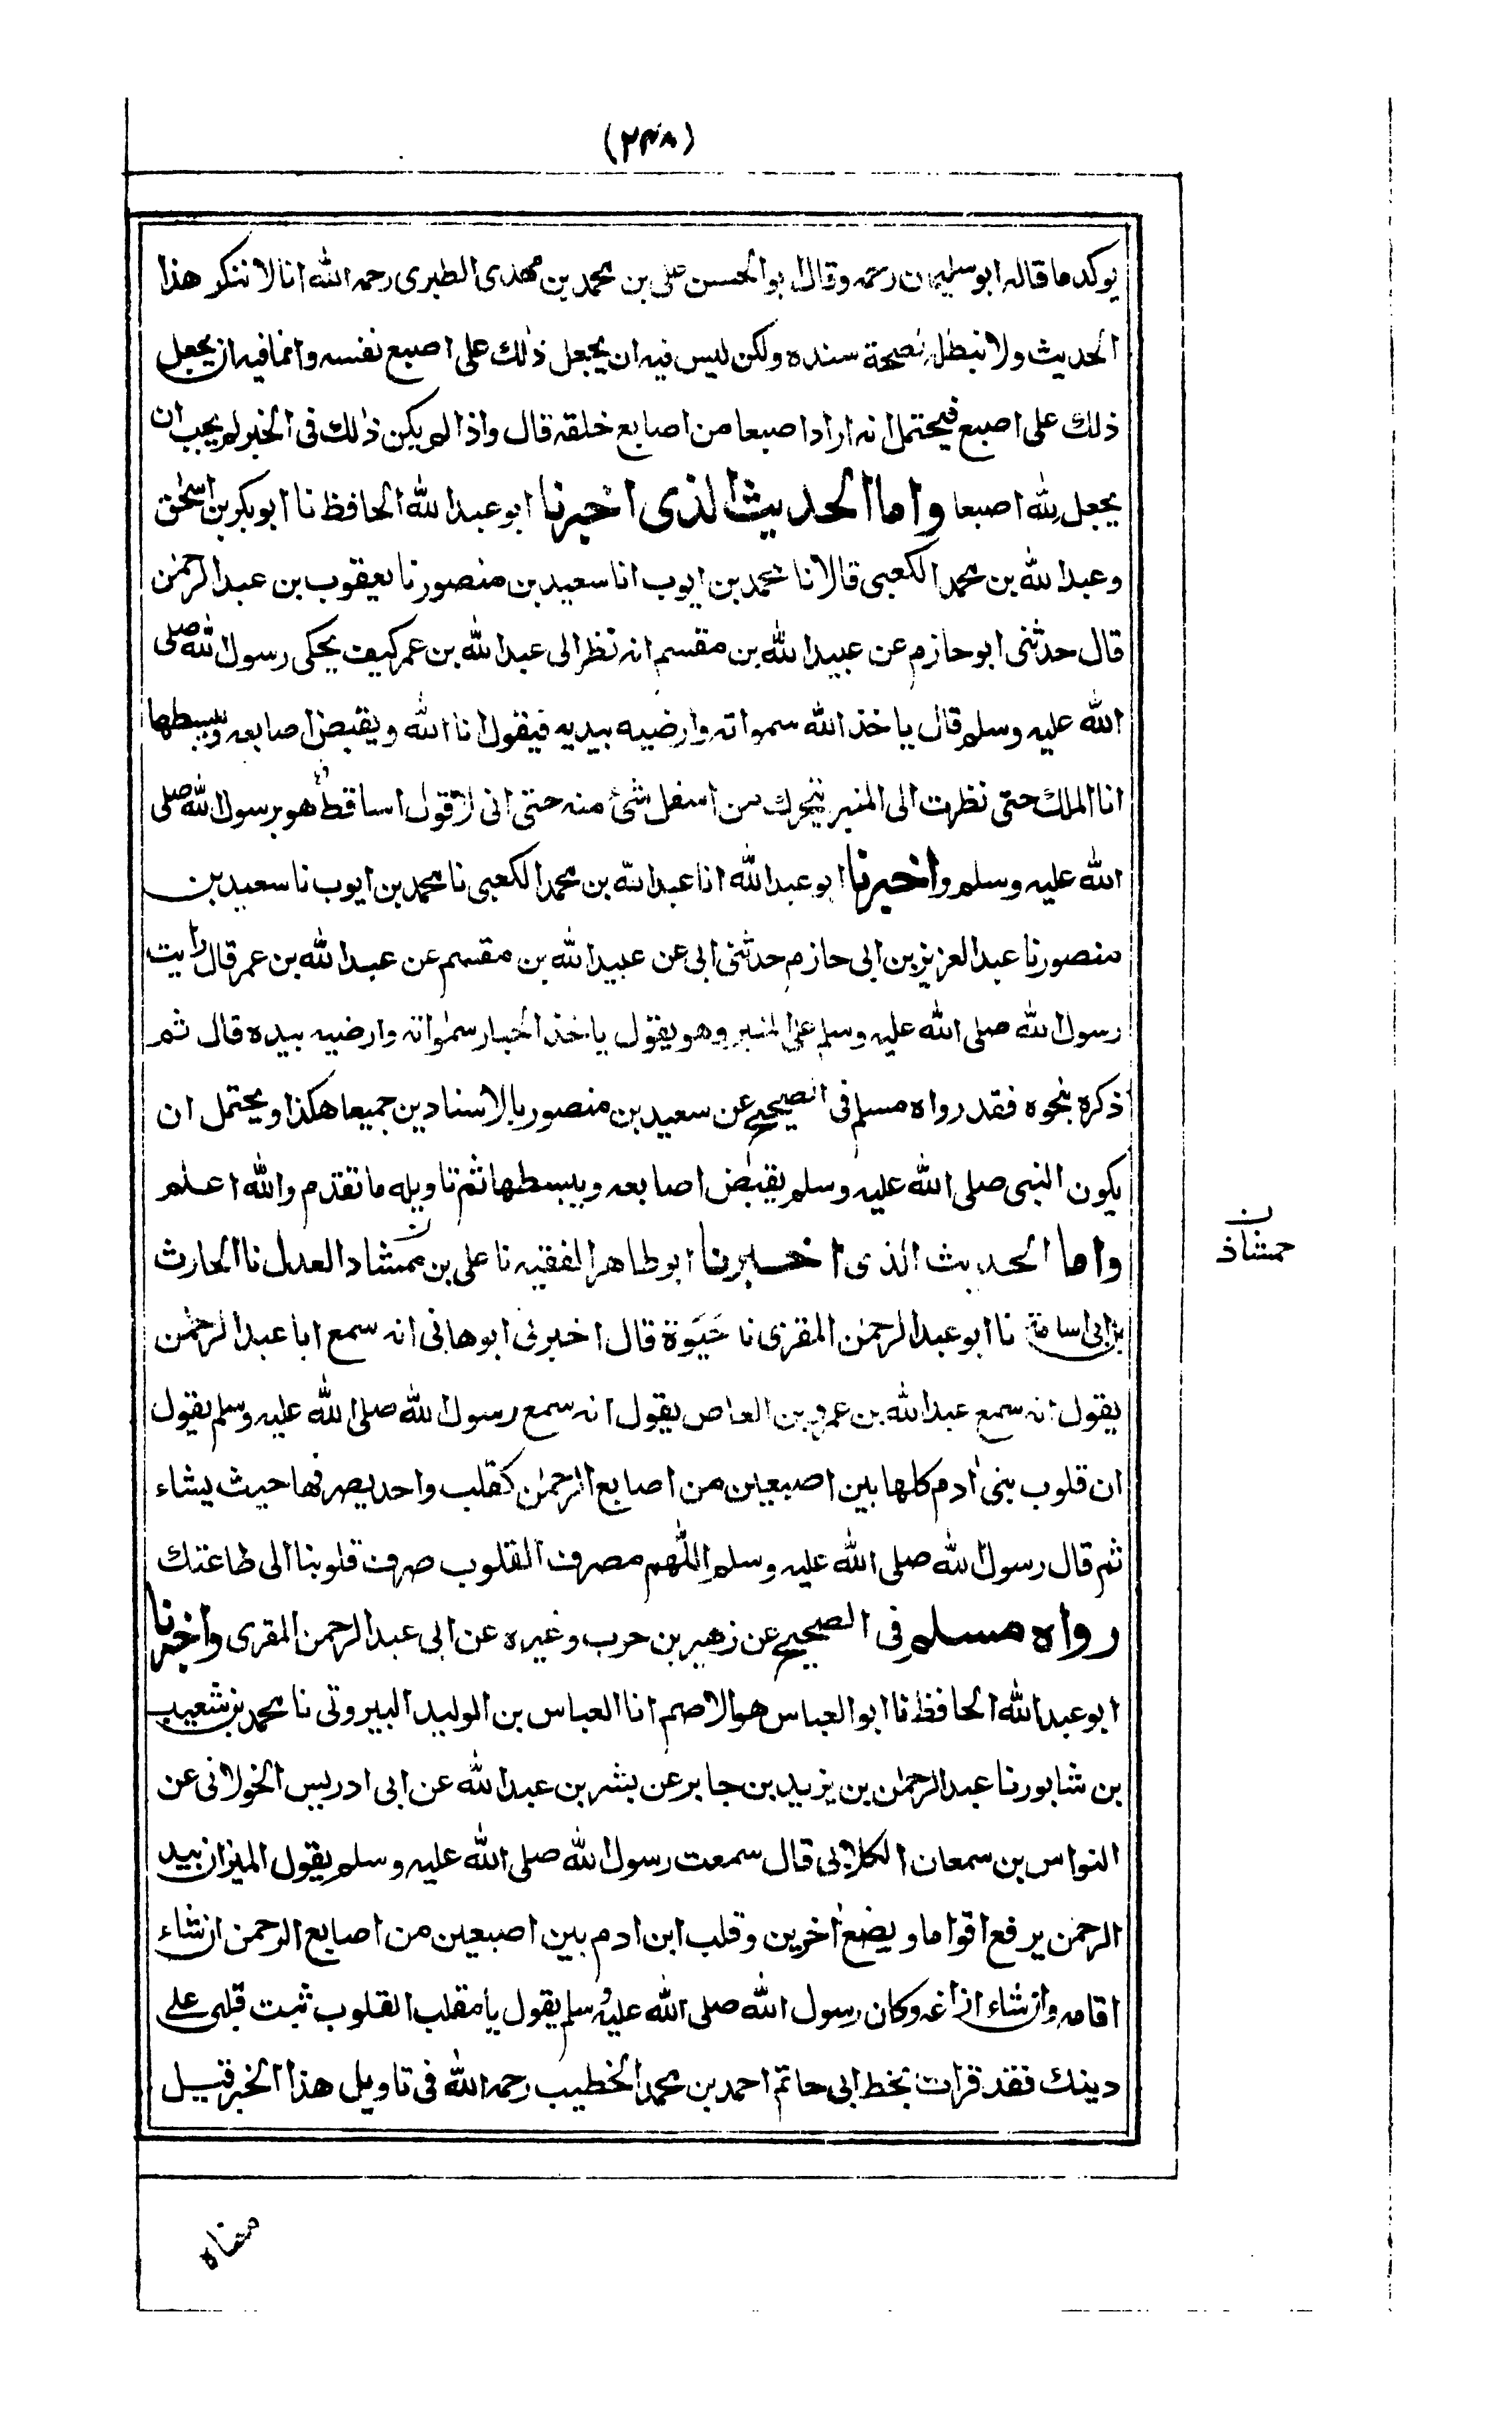 (۲۴۸)
يوكد ما قاله ابو سليمان رحمه وقال ابو الحسن على بن محمد بن مهدى الطبرى رحمه الله انا لا ننكر هذا
الحديث ولا نبطله لصحة سنده ولكن ليس فيه ان يجعل ذلك على اصبع نفسه وانما فيه ان يجعل
ذلك على اصبع فيحتمل انه اراد اصبعا من اصابع خلقه قال واذا لم يكن ذلك فى الخبر لم يجب ان
يجعل لله اصبعا واما الحديث الذى اخبرنا ابو عبد الله الحافظ نا ابو بكر بن اسحق
وعبد الله بن محمد الكعبى قالا نا محمد بن ايوب انا سعيد بن منصور نا يعقوب بن عبد الرحمن
قال حدثنى ابو حازم عن عبيد الله بن مقسم انه نظر الى عبد الله بن عمر كيف يحكى رسول الله صلى
الله عليه وسلم قال ياخذ الله سمواته وارضيه بيديه فيقول انا الله ويقبض اصابعه ويبسطها
انا الملك حتى نظرت الى المنبر يتحرك من اسفل شئ منه حتى انى لاقول اساقط هو برسول الله صلى
الله عليه وسلم واخبرنا ابو عبد الله انا عبد الله بن محمد الكعبى نا محمد بن ايوب نا سعيد بن
منصور نا عبد العزيز بن ابى حازم حدثنى ابى عن عبيد الله بن مقسم عن عبد الله بن عمر قال رايت
رسول الله صلى الله عليه وسلم على المنبر وهو يقول ياخذ الجبار سمٰواته وارضيه بيده قال ثم
ذكره بنحوه فقد رواه مسلم فى الصحيح عن سعيد بن منصور بالاسنادين جميعا هكذا ويحتمل ان
يكون النبى صلى الله عليه وسلم يقبض اصابعه ويبسطها ثم تاويله ما تقدم والله اعلم
واما الحديث الذى اخبرنا ابو طاهر الفقيه نا على بن ممشاد العدل نا الحارث
بن ابى اسامة نا ابو عبد الرحمن المقرى نا حَيَوة قال اخبرنى ابو هانى انه سمع ابا عبد الرحمن
يقول انه سمع عبد الله بن عمرو بن العاص يقول انه سمع رسول الله صلى الله عليه وسلم يقول
ان قلوب بنى اٰدم كلها بين اصبعين من اصابع الرحمن كقلب واحد يصرفها حيث يشاء
ثم قال رسول الله صلى الله عليه وسلم اللّٰهم مصرف القلوب صرف قلوبنا الى طاعتك
رواه مسلم فى الصحيح عن زهير بن حرب وغيره عن ابى عبد الرحمن المقرى واخبرنا
ابو عبد الله الحافظ نا ابو العباس هو الاصم انا العباس بن الوليد البيروتى نا محمد بن شعيب
بن شابور نا عبد الرحمن بن يزيد بن جابر عن بشر بن عبد الله عن ابى ادريس الخولانى عن
النواس بن سمعان الكلابى قال سمعت رسول الله صلى الله عليه وسلم يقول الميزان بيد
الرحمن يرفع اقواما ويضع اٰخرين وقلب ابن ادم بين اصبعين من اصابع الرحمن ان شاء
اقامه وان شاء ازاغه وكان رسول الله صلى الله عليه وسلم يقول يا مقلب القلوب ثبت قلبى على
دينك فقد قرات بخط ابى حاتم احمد بن محمد الخطيب رحمه الله فى تاويل هذا الخبر قيل
ن
حمشاذ
معناه